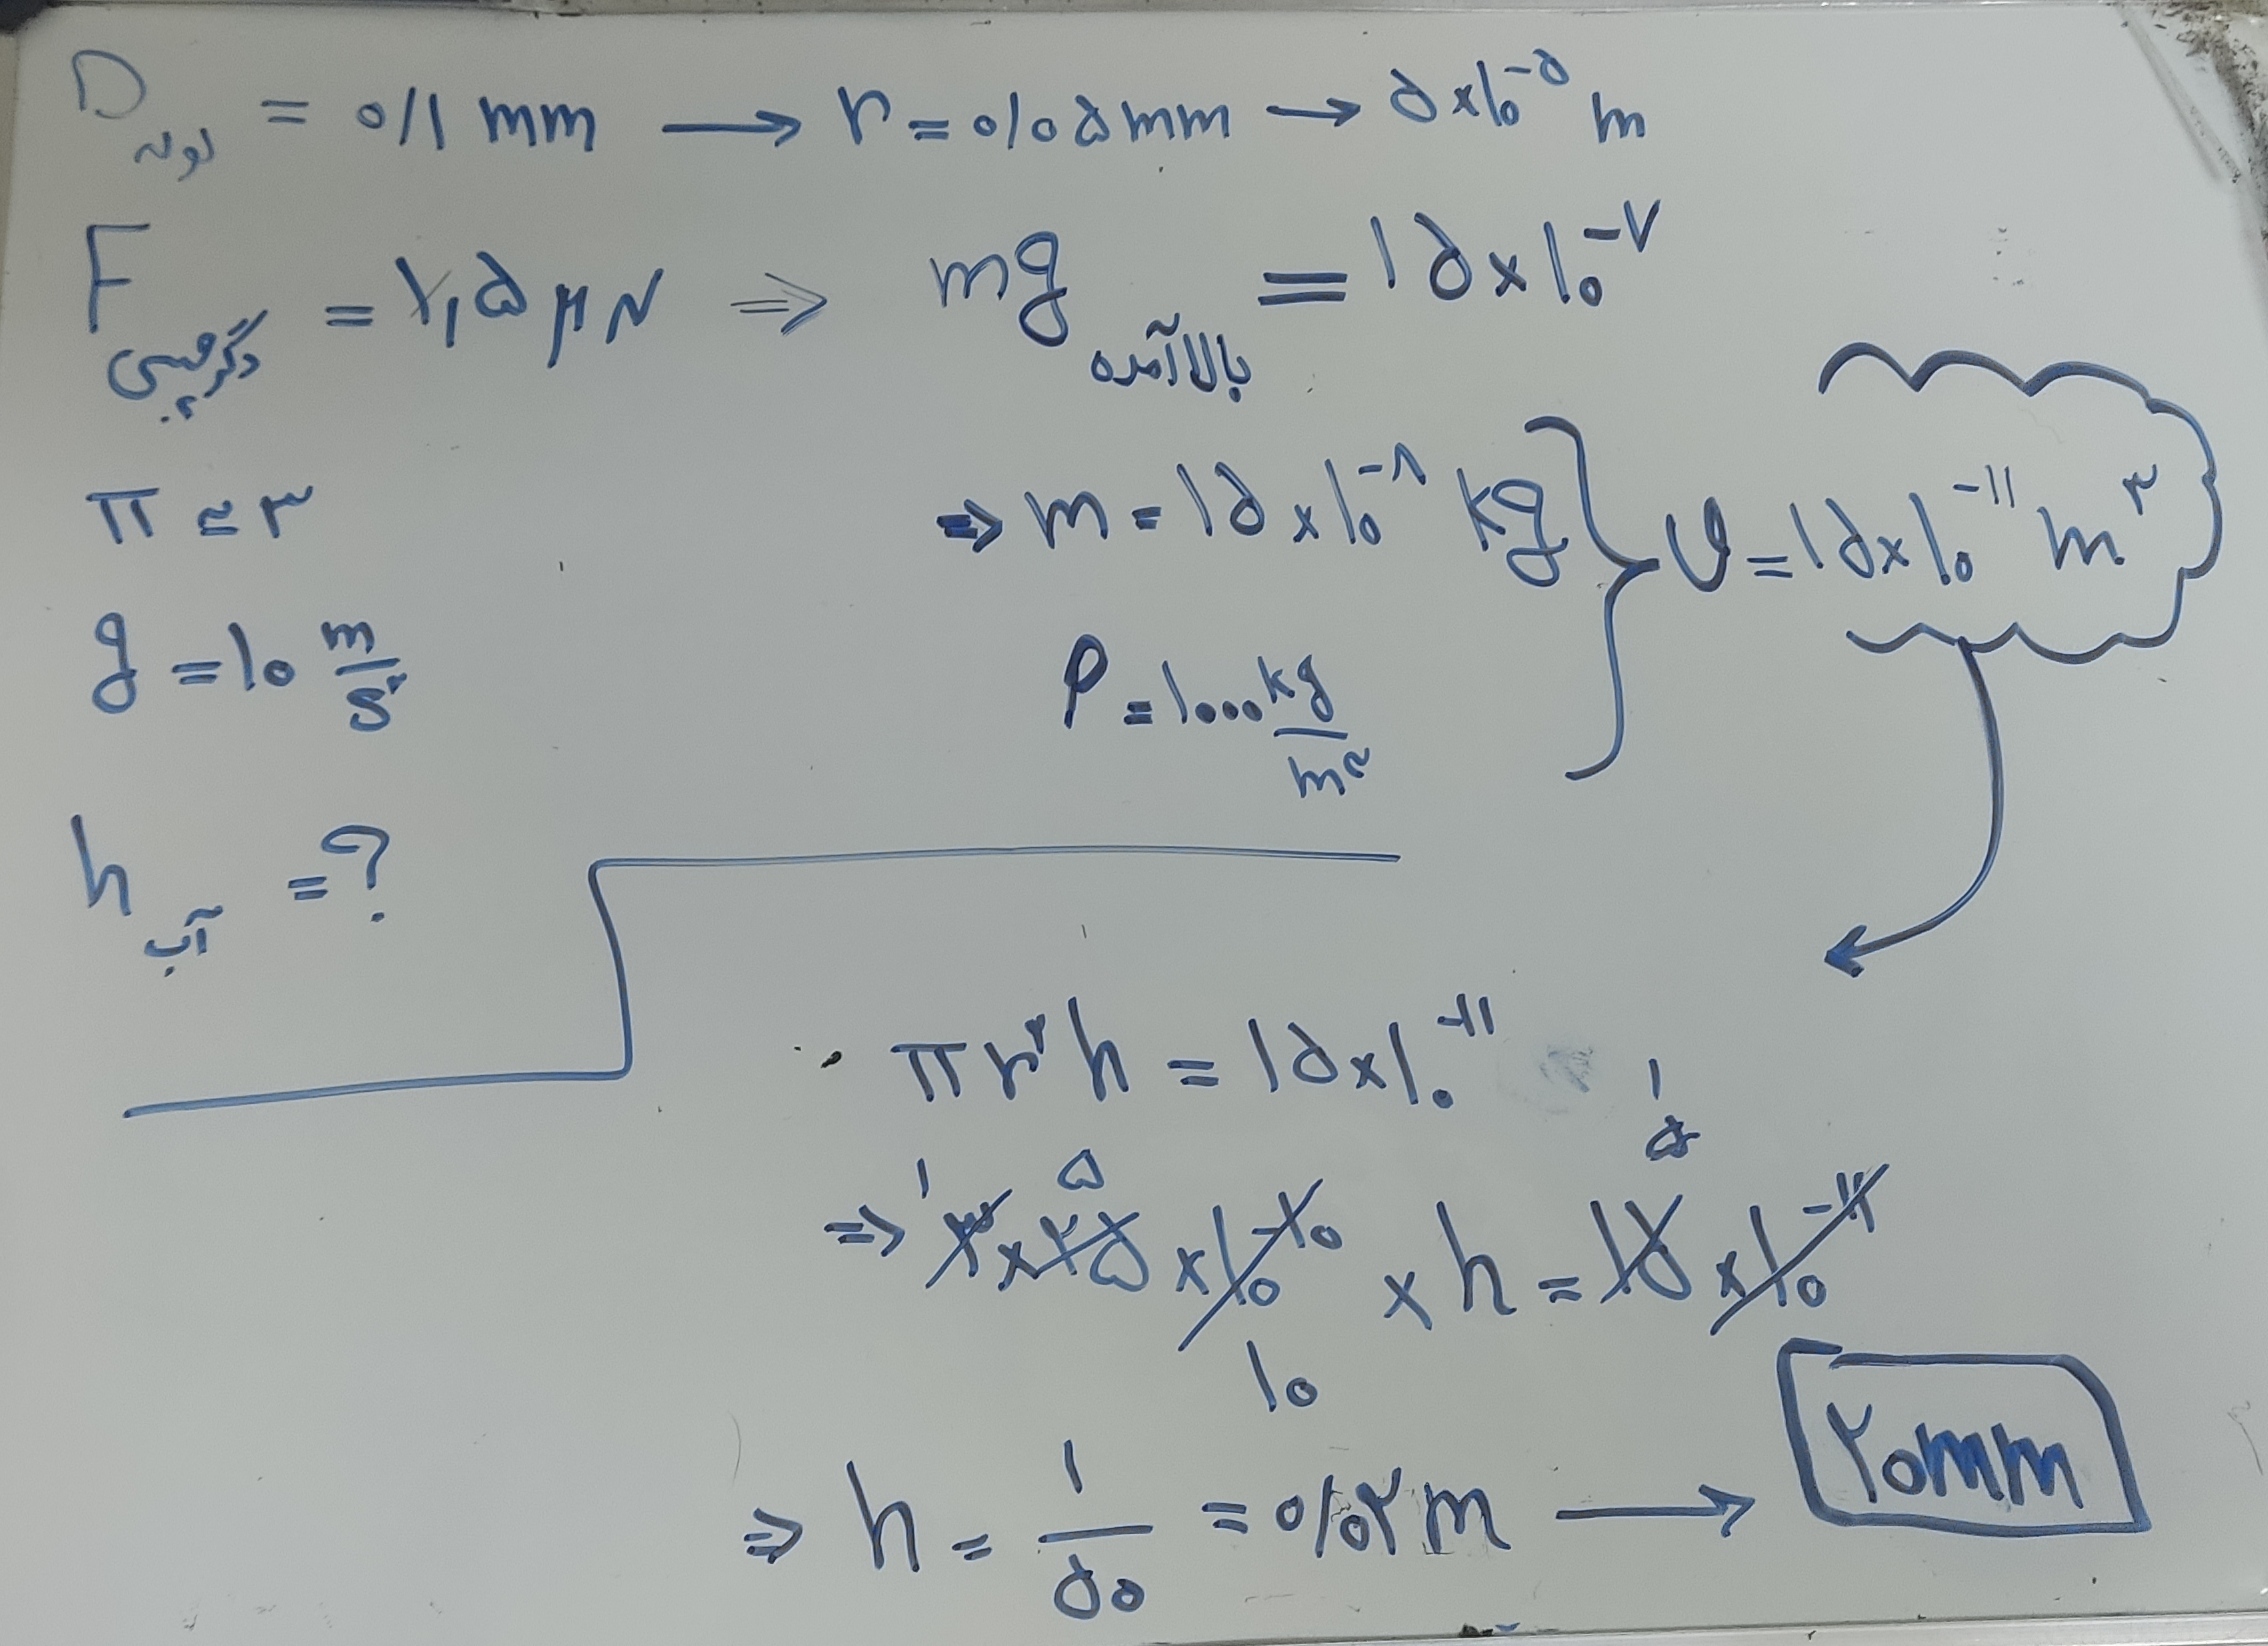 D لوله = ۰/۱ mm → r = ۰/۰۵ mm → ۵×۱۰^-۵ m
F دگرچسبی = ۱,۵ μN ⇒ mg بالا آمده = ۱۵×۱۰^-۷
π = ۳
⇒ m = ۱۵×۱۰^-۸ kg } V = ۱۵×۱۰^-۱۱ m^۳
g = ۱۰ m/s^۲
ρ = ۱۰۰۰ kg/m^۳
h آب = ?
πr^۲h = ۱۵×۱۰^-۱۱
۱ ۵ ۱
۵
⇒ ۳×۲۵×۱۰^-۱۰ × h = ۱۵×۱۰^-۱۱
۱۰
⇒ h = ۱/۵۰ = ۰/۰۲ m → ۲۰mm